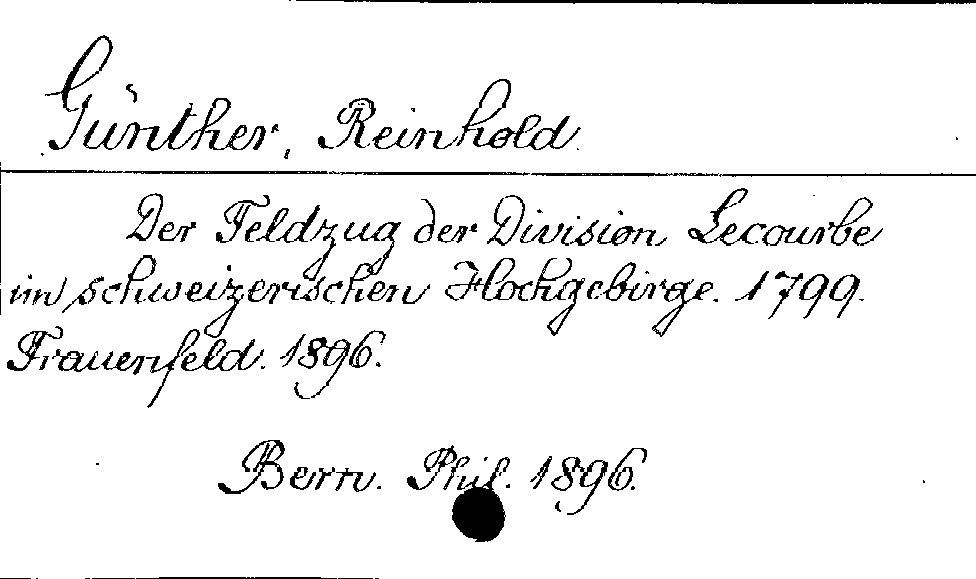 Günther, Reinhold.
Der Feldzug der Division Lecourbe
im schweizerischen Hochgebirge. 1799.
Frauenfeld. 1896.
Bern. Phil. 1896.